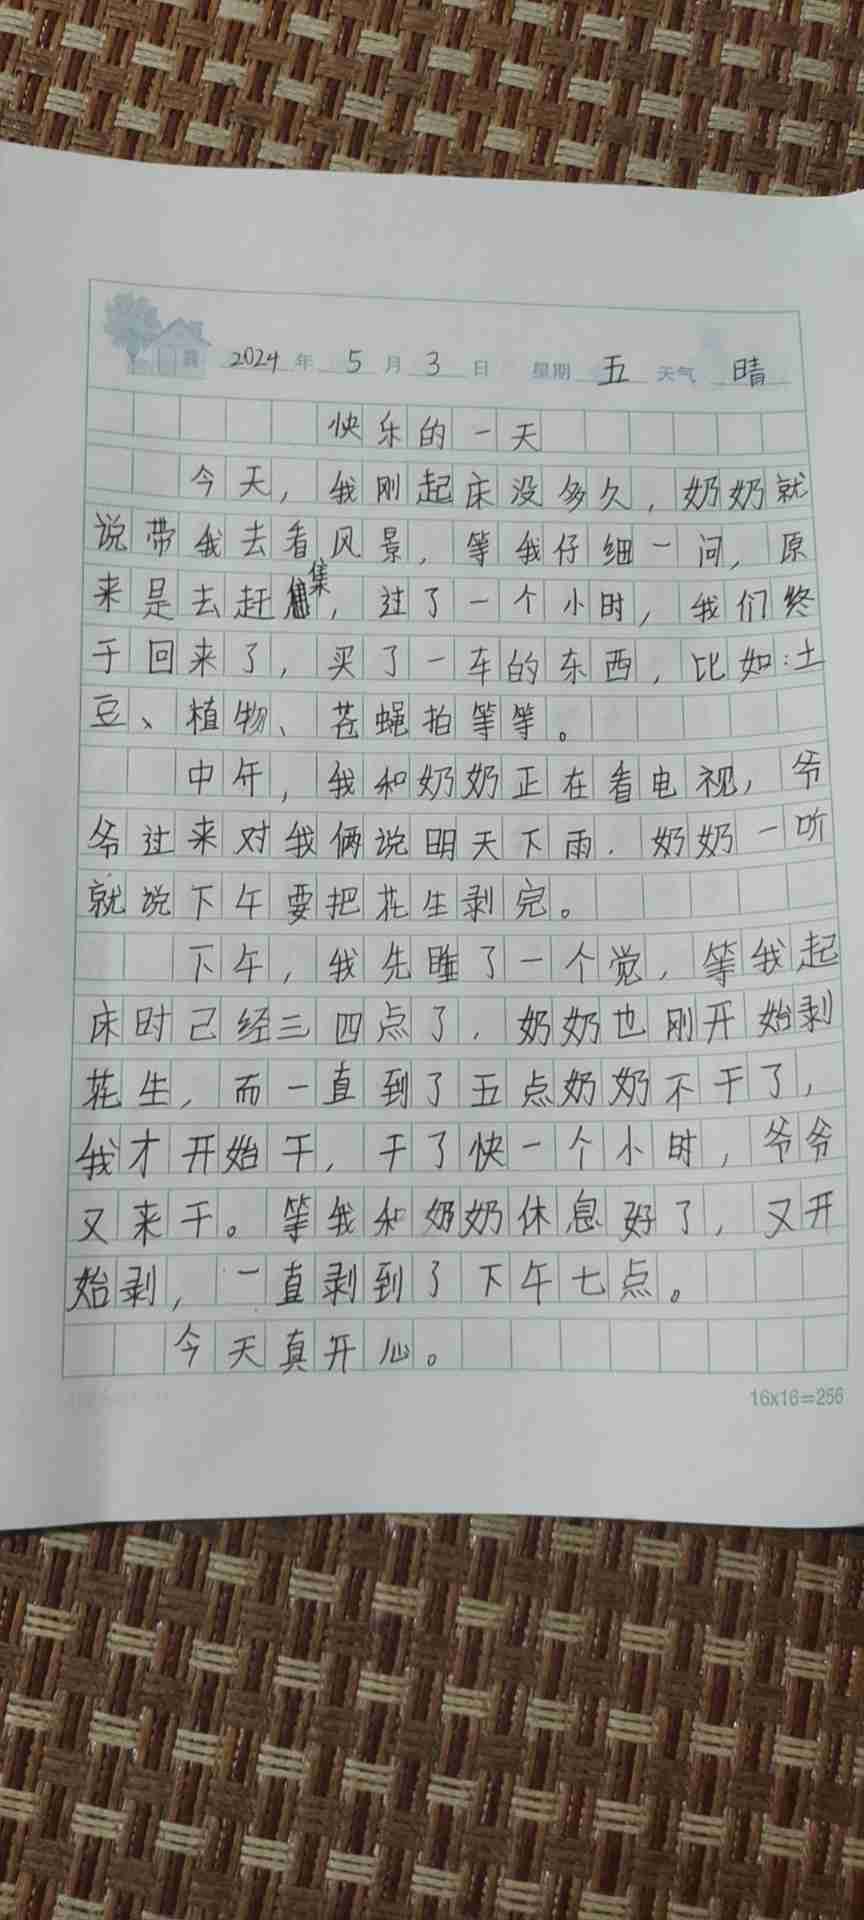 2024年 5月 3日 星期 五 天气 晴
快乐的一天
今天，我刚起床没多久，奶奶就
说带我去看风景，等我仔细一问，原
来是去赶集，过了一个小时，我们终
于回来了，买了一车的东西，比如：土
豆、植物、苍蝇拍等等。
中午，我和奶奶正在看电视，爷
爷过来对我俩说明天下雨．奶奶一听
就说下午要把花生剥完。
下午，我先睡了一个觉，等我起
床时己经三四点了．奶奶也刚开始剥
花生，而一直到了五点奶奶不干了，
我才开始干，干了快一个小时，爷爷
又来干。等我和奶奶休息好了，又开
始剥，一直剥到了下午七点。
今天真开心。
16x16=256